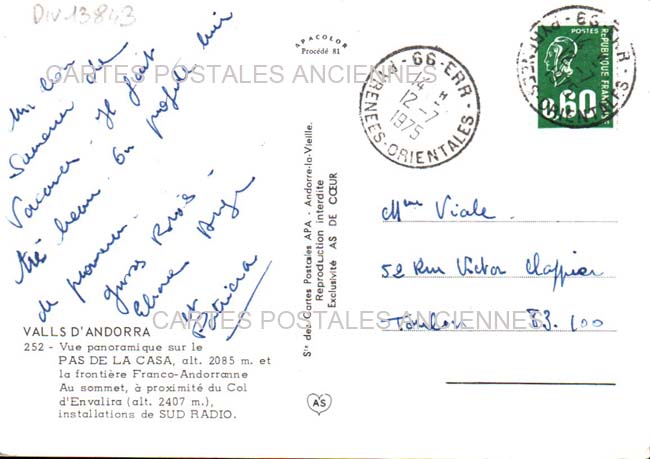 Div 13843
APACOLOR
Procédé 81
CARTES POSTALES ANCIENNES
Un bon
Souvenir de
Vacances. Il fait
très beau. On profite bien
de promener.
grosses Bises
Eliane Ange
et Patricia
66 - ERR
14 H
12-7
1975
PYRENEES-ORIENTALES
POSTES
REPUBLIQUE FRANCAISE
0,60
66-ERR
PYRENEES-ORIENTALES
Mme Viale.
52 Rue Victor Clappier
Toulon 83.100
Sté des Cartes Postales APA - Andorre-la-Vieille.
Reproduction interdite
Exclusivité AS DE CŒUR
CARTES POSTALES ANCIENNES
VALLS D'ANDORRA
252 - Vue panoramique sur le
PAS DE LA CASA, alt. 2085 m. et
la frontière Franco-Andorranne
Au sommet, à proximité du Col
d'Envalira (alt. 2407 m.),
installations de SUD RADIO.
AS